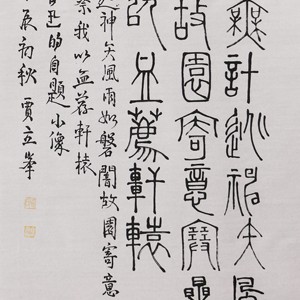 無計逃神矢風
故園寄意寒星
血薦軒轅
神矢風雨如磐闇故園寄意
察我以血荐軒轅
迅的自題小像
初秋賈立峯